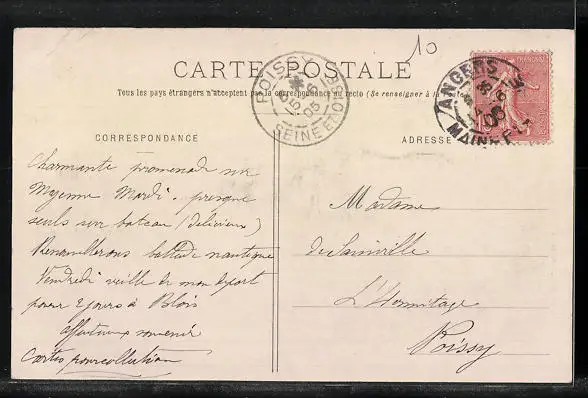 10
CARTE POSTALE
Tous les pays étrangers n'acceptent pas la correspondance au recto (Se renseigner à la
CORRESPONDANCE
ADRESSE
POISSY
5-6
05
SEINE ET OISE
ANGERS
05
MAINE
Charmante promenade sur
Mayenne Mardi. presque
seuls sur bateau (delicieux)
Renouvellerons ballade nautique
Vendredi veille de mon départ
pour 2 jours à Blois
affectueux souvenir
Cartes pour collection
Madame
de Sainville
L'Hermitage
Poissy